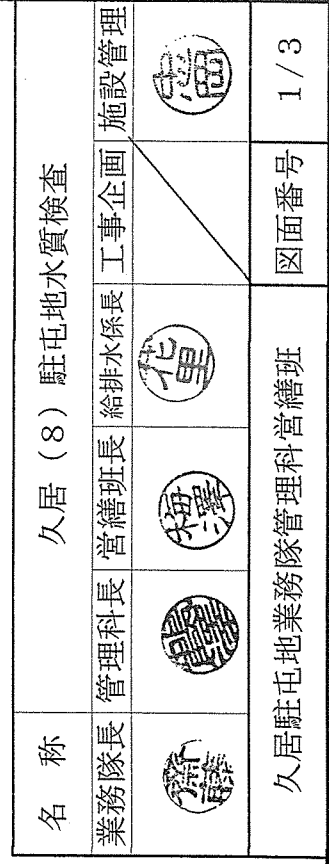 名 称 久居（8）駐屯地水質検査
業務隊長 管理科長 営繕班長 給排水係長 工事企画 施設管理
梅澤
久居駐屯地業務隊管理科営繕班 図面番号 1/3